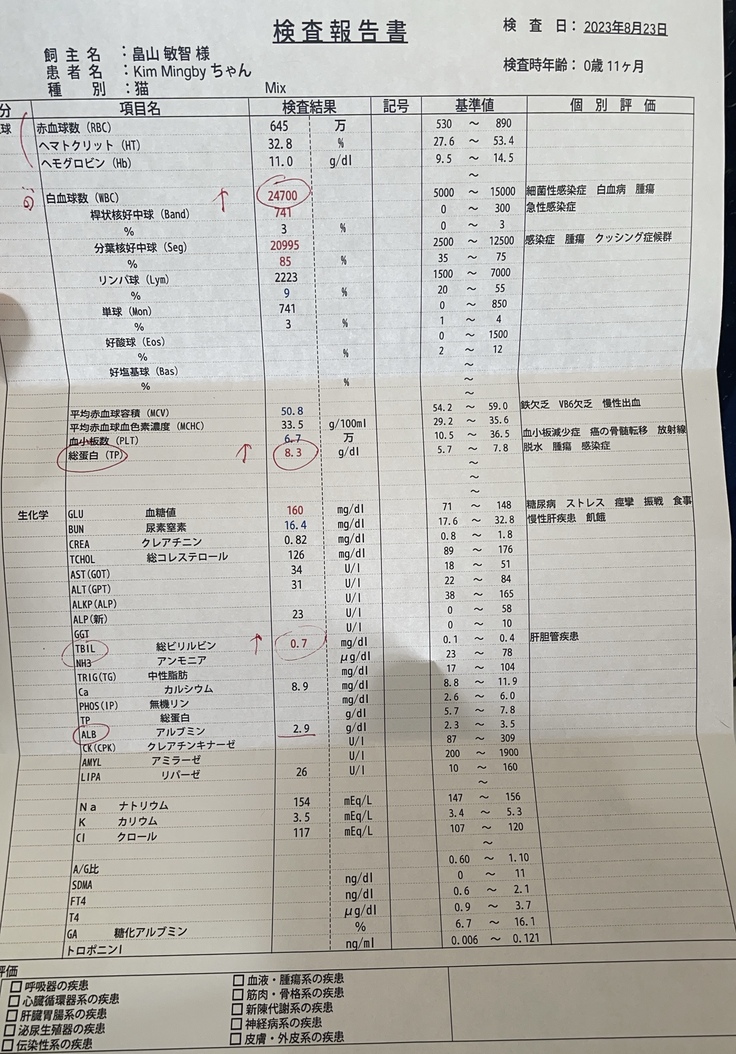 検査報告書
検 査 日：2023年8月23日
飼 主 名 ：畠山 敏智 様
検査時年齢：0歳 11ヶ月
患 者 名 ：Kim Mingby ちゃん
種 別 ：猫 Mix
分 項目名 検査結果 記号 基準値 個 別 評 価
球 赤血球数 (RBC) 645 万 530 ～ 890
ヘマトクリット (HT) 32.8 % 27.6 ～ 53.4
ヘモグロビン (Hb) 11.0 g/dl 9.5 ～ 14.5
～
白血球数 (WBC) ↑ 24700 5000 ～ 15000 細菌性感染症 白血病 腫瘍
桿状核好中球 (Band) 741 0 ～ 300 急性感染症
% 3 % 0 ～ 3
分葉核好中球 (Seg) 20995 2500 ～ 12500 感染症 腫瘍 クッシング症候群
% 85 % 35 ～ 75
リンパ球 (Lym) 2223 1500 ～ 7000
% 9 % 20 ～ 55
単球 (Mon) 741 0 ～ 850
% 3 % 1 ～ 4
好酸球 (Eos) 0 ～ 1500
% % 2 ～ 12
好塩基球 (Bas) ～
% % ～
～
平均赤血球容積 (MCV) 50.8 54.2 ～ 59.0 鉄欠乏 VB6欠乏 慢性出血
平均赤血球血色素濃度 (MCHC) 33.5 g/100ml 29.2 ～ 35.6
血小板数 (PLT) 6.7 万 10.5 ～ 36.5 血小板減少症 癌の骨髄転移 放射線
総蛋白 (TP) ↑ 8.3 g/dl 5.7 ～ 7.8 脱水 腫瘍 感染症
～
～
～
生化学 GLU 血糖値 160 mg/dl 71 ～ 148 糖尿病 ストレス 痙攣 振戦 食事
BUN 尿素窒素 16.4 mg/dl 17.6 ～ 32.8 慢性肝疾患 飢餓
CREA クレアチニン 0.82 mg/dl 0.8 ～ 1.8
TCHOL 総コレステロール 126 mg/dl 89 ～ 176
AST(GOT) 34 U/l 18 ～ 51
ALT(GPT) 31 U/l 22 ～ 84
ALKP(ALP) U/l 38 ～ 165
ALP(新) 23 U/l 0 ～ 58
GGT U/l 0 ～ 10
TBIL 総ビリルビン ↑ 0.7 mg/dl 0.1 ～ 0.4 肝胆管疾患
NH3 アンモニア μg/dl 23 ～ 78
TRIG(TG) 中性脂肪 mg/dl 17 ～ 104
Ca カルシウム 8.9 mg/dl 8.8 ～ 11.9
PHOS(IP) 無機リン mg/dl 2.6 ～ 6.0
TP 総蛋白 g/dl 5.7 ～ 7.8
ALB アルブミン 2.9 g/dl 2.3 ～ 3.5
CK(CPK) クレアチンキナーゼ U/l 87 ～ 309
AMYL アミラーゼ U/l 200 ～ 1900
LIPA リパーゼ 26 U/l 10 ～ 160
～
Na ナトリウム 154 mEq/L 147 ～ 156
K カリウム 3.5 mEq/L 3.4 ～ 5.3
Cl クロール 117 mEq/L 107 ～ 120
A/G比 0.60 ～ 1.10
SDMA ng/dl 0 ～ 11
FT4 ng/dl 0.6 ～ 2.1
T4 μg/dl 0.9 ～ 3.7
GA 糖化アルブミン % 6.7 ～ 16.1
トロポニンI ng/ml 0.006 ～ 0.121
評価
□ 呼吸器の疾患 □ 血液・腫瘍系の疾患
□ 心臓循環器系の疾患 □ 筋肉・骨格系の疾患
□ 肝臓胃腸系の疾患 □ 新陳代謝系の疾患
□ 泌尿生殖器の疾患 □ 神経病系の疾患
□ 伝染性系の疾患 □ 皮膚・外皮系の疾患